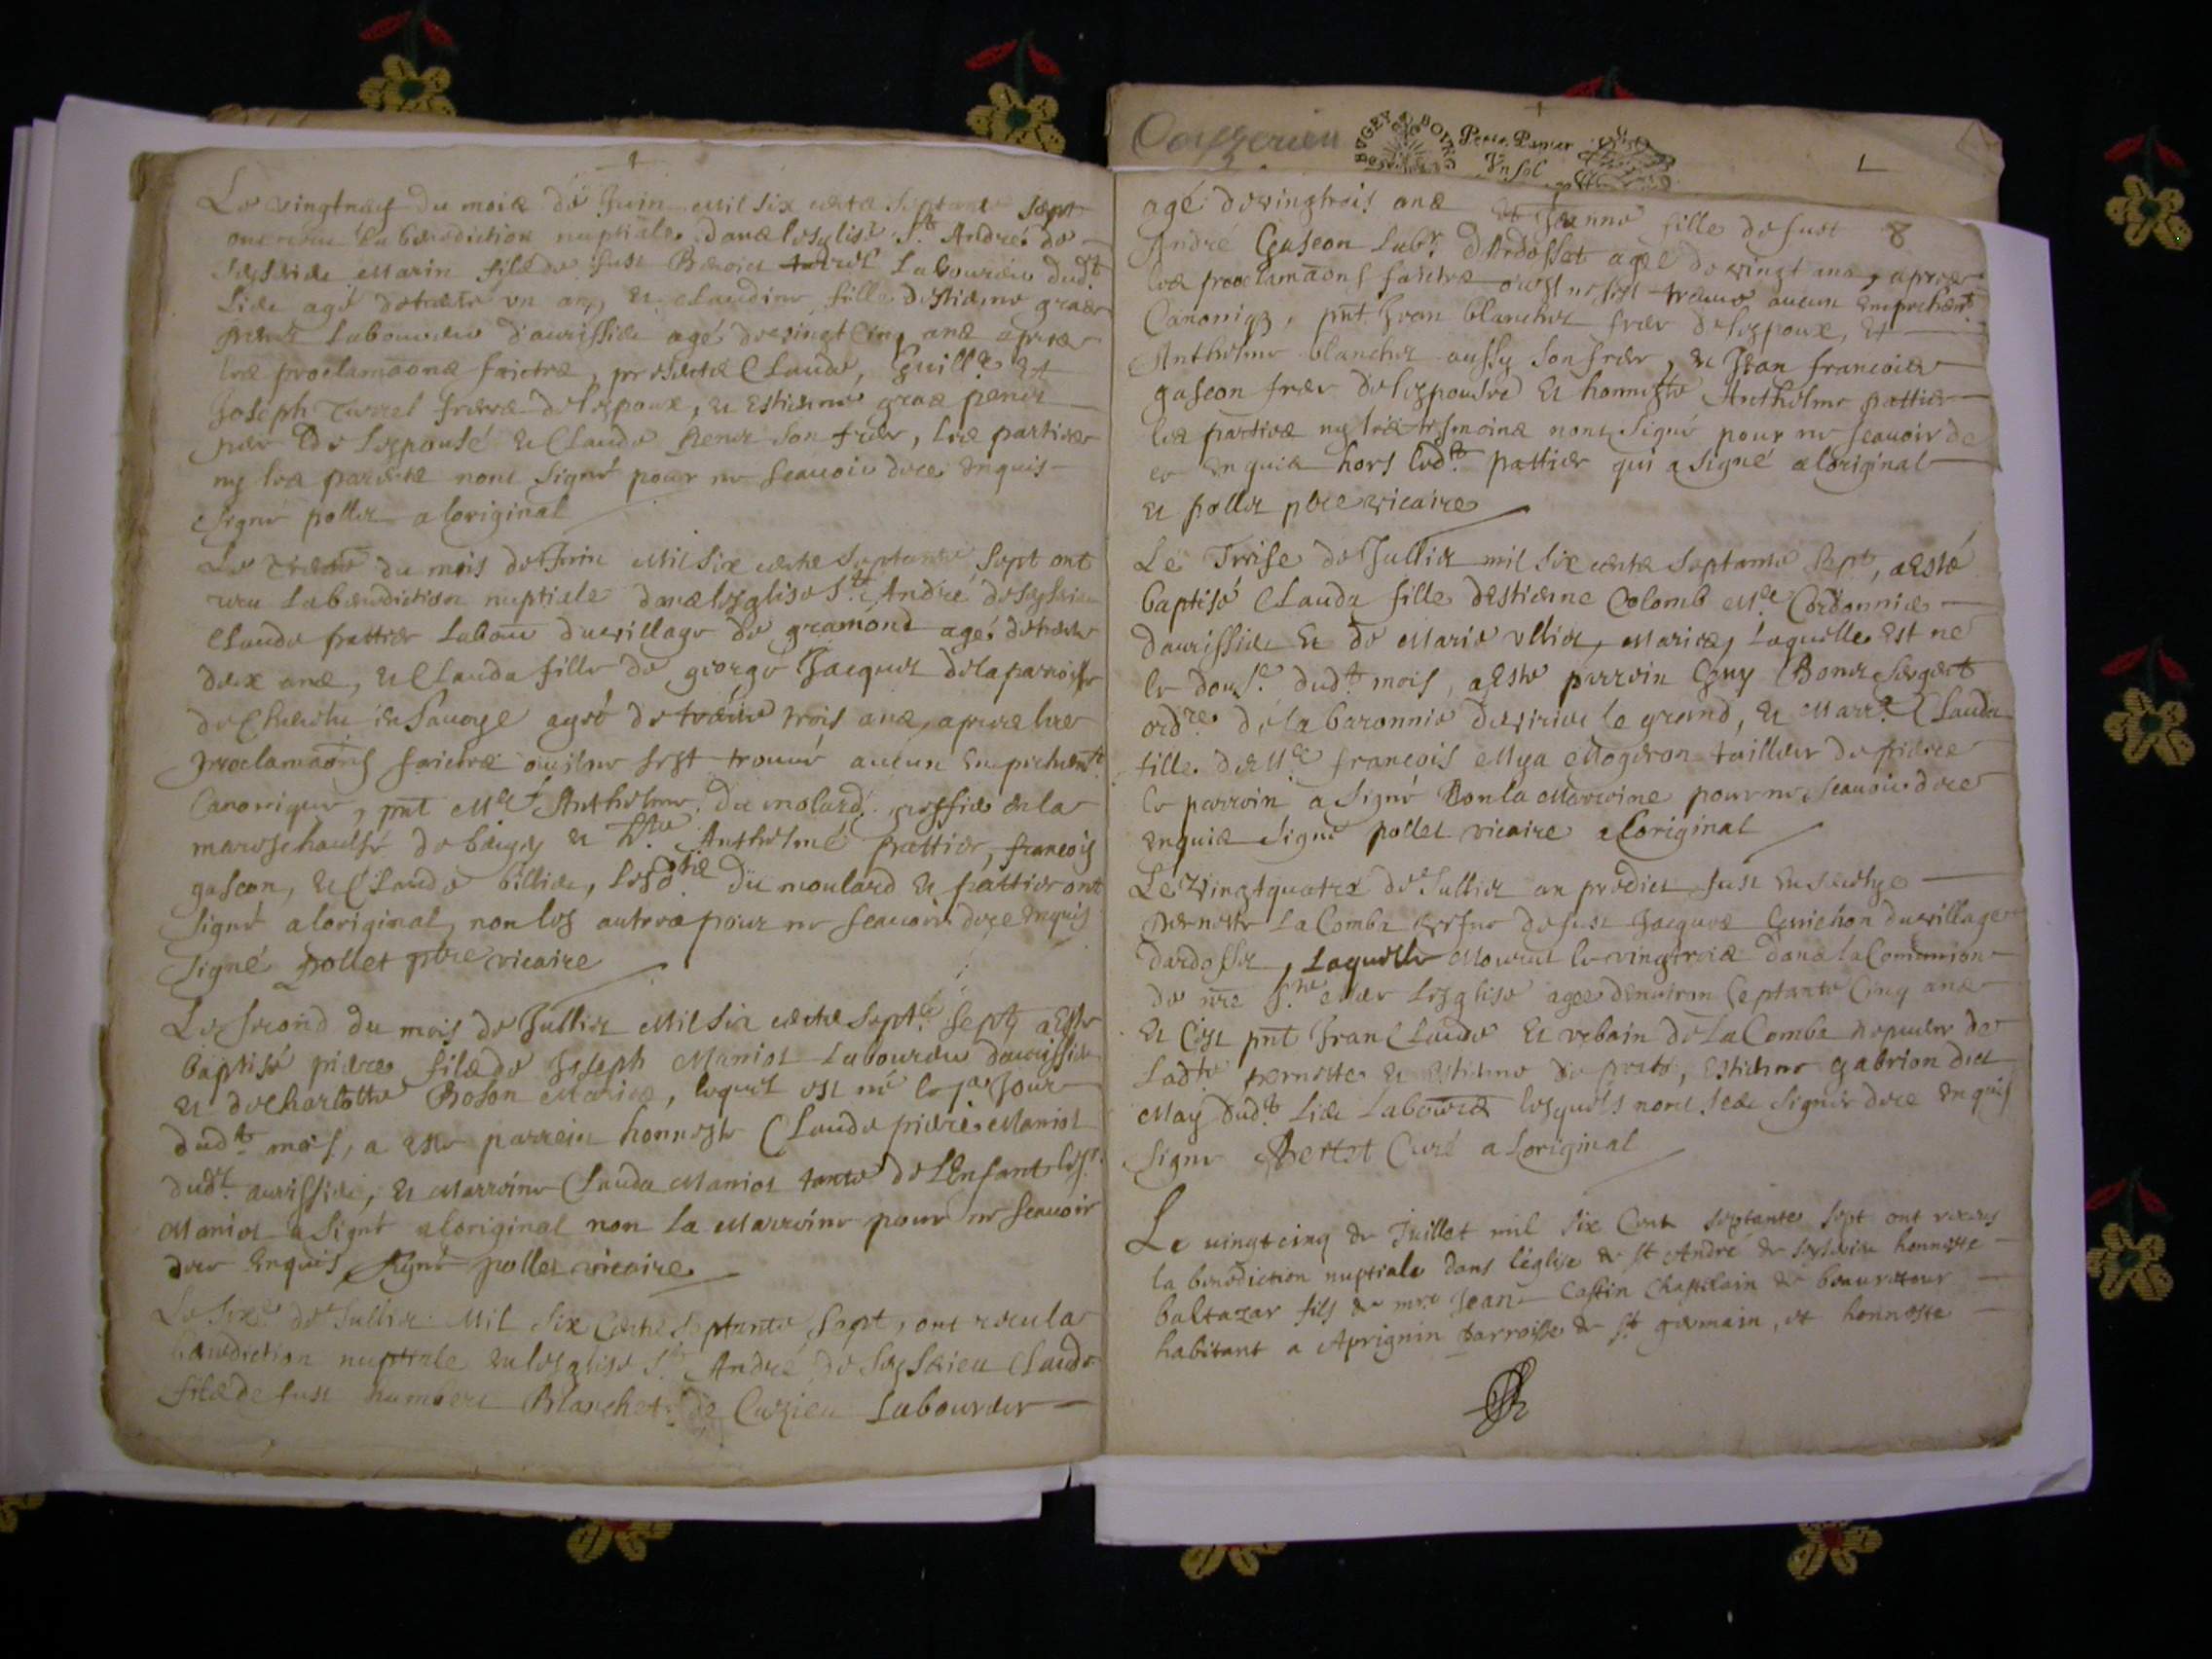 Le vingtneuf du mois de Juin Mil six cents septante sept
ont receu la benediction nuptiale dans lesglise St André de
Seyssieu Marin fils de fust Benoict turrel laboureur dudt
lieu agé de trente un an, et Claudine fille destienne gras
perret laboureur d'aurissieu agé de vingt cinq ans apres
les proclamaons faictes, presents Claude, Guille et
Joseph Turrel freres de lespoux, et Estienne gras perret
pere de lespouse et Claude Perret son frere, les parties
ny les parents nont signé pour ne scauoir de ce enquis
signé pollet a loriginal
Le trente du mois de Juin Mil six cents septante sept ont
receu la benediction nuptiale dans lesglise St André de Seyssieu
Claude pattier labour du village de gramond agé de trente
deux ans, et Clauda fille de george Jacquet de la parroisse
de en Sauoye agée de trente trois ans, apres les
proclamaons faictes ou il ne sest trouué aucun empechemt
Canonique, pnt Me Anthelme du molard, greffier en la
mareschaussé de bugey et hble Anthelme pattier, francois
gascon, et Claude billieu, lesdts du moulard et pattier ont
signé a loriginal, non les autres pour ne scauoir de ce enquis
signé pollet ptre vicaire
Le second du mois de Jullict Mil six cents septte sept, a esté
baptisé pierre fils de Joseph Maniot laboureur daurissieu
et de charlotte Boson Mariés, lequel est né le per Jour
dudt mois, a este parrein honneste Claude pierre Maniot
dudt aurissieu, et Marreine Clauda Maniot tante de lEnfant ledt
Maniot a signé a loriginal non la Marreine pour ne scauoir
de ce enquis, signé pollet vicaire
Le sixe de Jullict Mil six Cents septante sept, ont receu la
benediction nuptiale en lesglise St André de Seyssieu Claude
fils de fust humbert Blanchet de Cuzieu laboureur
BVGEY BOVRG
Petit Papier
Vn sol
8
agé de vingtrois ans et Jeanne fille de fust
André Gascon labr d'Ardosset agée de vingt ans, apres
les proclamaons faictes ou il ne sest treuué aucun empechemt
Canoniq, pnt Jean blanchet frere de lespoux, et
Anthelme blanchet aussy son frere, et Jean francois
gascon frere de lespouse et honneste Anthelme pattier
les parties ny les tesmoins nont signé pour ne scauoir de
ce enquis hors ledt pattier qui a signé a loriginal
et pollet ptre vicaire
Le Treise de Jullict mil six cents septante sept, a esté
baptisé Clauda fille destienne Colomb Me Cordonnier
daurissieu et de Marie vlliet, Mariés, laquelle est ne
le douse dudt mois, a este parrein Guy Bonet Sergent
ordre de la baronnie de virieu le grand, et Marre Clauda
fille de Me francois Mya Mogeron tailleur de pierre
le parrein a signé non la Marreine pour ne scauoir de ce
enquis signé pollet vicaire a loriginal
Le Vingtquatre de Jullict an predict fust enseuelye
Pernette La Comba vefue de fust Jacques Guichon du village
dardosset, Laquelle Mourut le vingtrois dans la Comunion
de nre Ste mere lesglise agee denuiron septante Cinq ans
et Ce pnt Jean Claude et vrbain de La Comba nepueux de
Ladte pernette et estienne de porte, Estienne gabrion dict
May dudt lieu Laboures lesquels nont sceu signer de ce enquis
Signé Bertet Curé a Loriginal
Le vingt cinq de Juillet mil six Cent septante sept ont receus
la benediction nuptiale dans l'église de st André de seyssieu honneste
baltazar fils de mre Jean Castin Chastelain de beauretour
habitant a Aprignin parroisse de St germain, et honneste